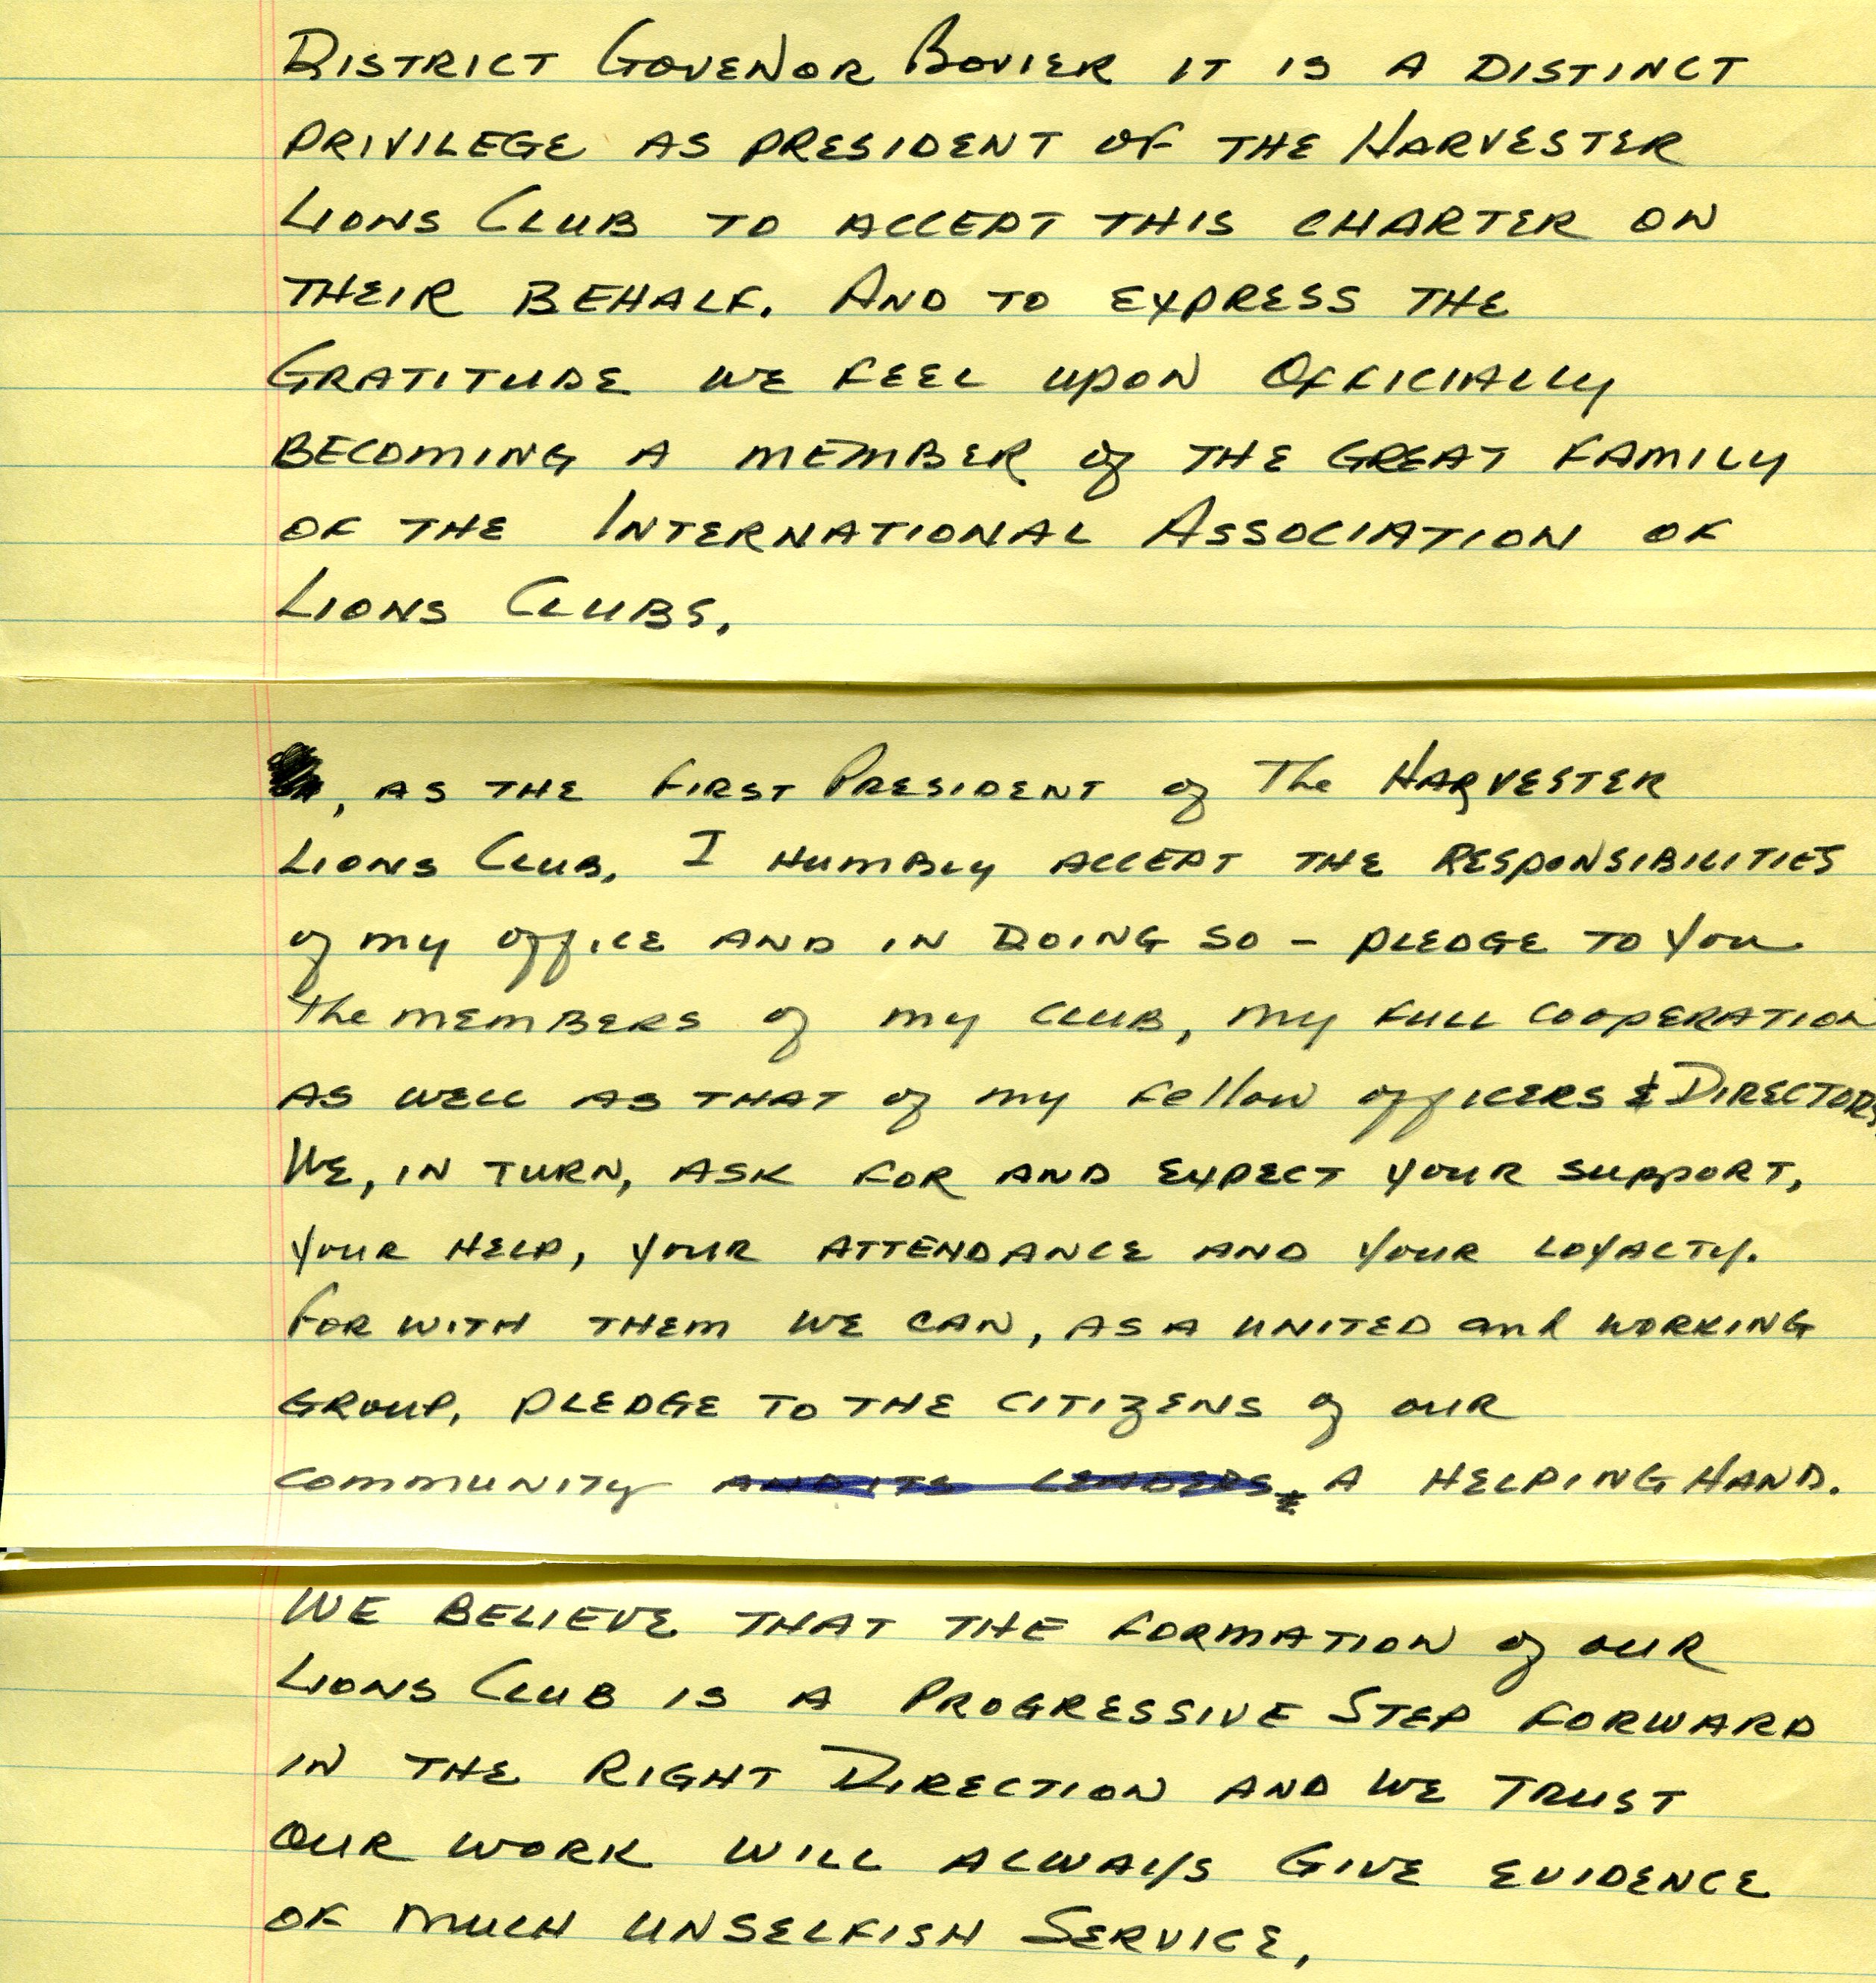 DISTRICT GOVENOR BOVIER IT IS A DISTINCT
PRIVILEGE AS PRESIDENT OF THE HARVESTER
LIONS CLUB TO ACCEPT THIS CHARTER ON
THEIR BEHALF. AND TO EXPRESS THE
GRATITUDE WE FEEL UPON OFFICIALLY
BECOMING A MEMBER of THE GREAT FAMILY
OF THE INTERNATIONAL ASSOCIATION OF
LIONS CLUBS.
, AS THE FIRST PRESIDENT of The HARVESTER
LIONS CLUB, I HUMBLY ACCEPT THE RESPONSIBILITIES
of my office AND IN DOING SO - PLEDGE TO You
the MEMBERS of my CLUB, MY FULL COOPERATION
AS WELL AS THAT of my Fellow officERS & DIRECTORS
WE, IN TURN, ASK FOR AND EXPECT YOUR SUPPORT,
YOUR HELP, YOUR ATTENDANCE AND YOUR LOYALTY.
FOR WITH THEM WE CAN, AS A UNITED and WORKING
GROUP, PLEDGE TO THE CITIZENS of OUR
COMMUNITY AND ITS LEADERS A HELPING HAND.
WE BELIEVE THAT THE FORMATION of OUR
LIONS CLUB IS A PROGRESSIVE STEP FORWARD
IN THE RIGHT DIRECTION AND WE TRUST
OUR WORK WILL ALWAYS GIVE EVIDENCE
OF MUCH UNSELFISH SERVICE,